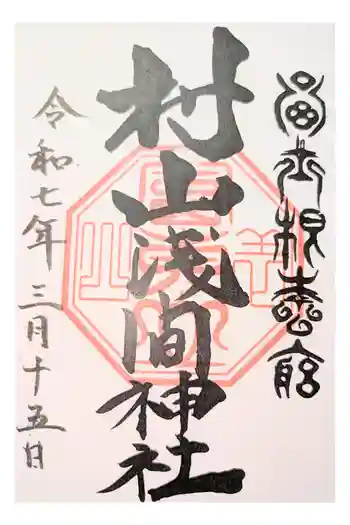 富士根本宮
村山浅間神社
令和七年三月十五日